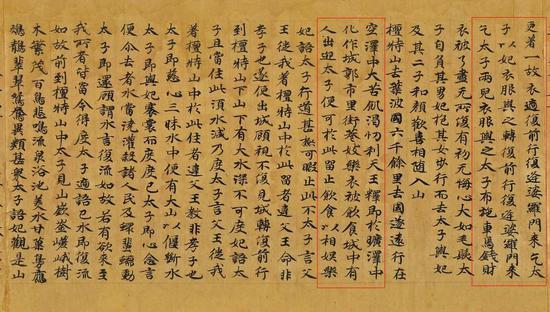 更著一故衣適復前行復逢婆羅門來乞太
子以妃衣服與之轉復前行復逢婆羅門來
乞太子兩兒衣服與之太子布施車馬錢財
衣被了盡无所復有初无悔心大如毛髮太
子自負其男妃抱其女步行而去太子與妃
及其二子和顏歡喜相隨入山
檀特山去葉波國六千餘里去國遂遠行在
空澤中大苦飢渴忉利天王釋即於曠澤中
化作城郭市里街巷妓樂衣被飲食城中有
人出迎太子便可於此留止飲食以相娛樂
妃語太子行道甚極可暇止此不太子言父
王徙我著檀特山中於此留者違父王命非
孝子也遂便出城顧視不復見城轉復前行
到檀特山下山下有大水深不可度妃語太
子且當住此須水減乃度太子言父王徙我
著檀特山中於此住者違父王教非孝子也
太子即慈心三昧水中便有大山以堰斷水
太子即與妃褰裳而度度已太子即心念言
便介去者水當澆灌殺諸人民及蜎蜚蠕動
太子即還顧謂水言復流如故若有欲來至
我所者皆當令得度太子適語已水即復流
如故前到檀特山中太子見山嶔崟嵯峨樹
木繁茂百鳥悲鳴流泉浴池美水甘菓鳧鴈
鵁鶄翡翠鴛鴦異類甚眾太子語妃觀是山